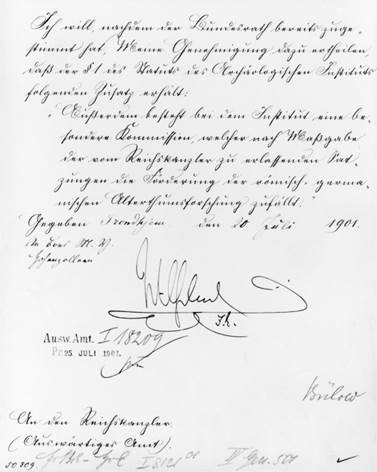 Ich will, nachdem der Bundesrath bereits zuge-
stimmt hat, Meine Genehmigung dazu ertheilen,
daß der § 1 des Statuts des Archäologischen Instituts
folgenden Zusatz erhält:
„Außerdem besteht bei dem Institut eine be-
sondere Kommission, welcher nach Maßgabe
der vom Reichskanzler zu erlassenden Sat-
zungen die Förderung der römisch-germa-
nischen Alterthumsforschung zufällt."
Gegeben Trondhjem den 20 Juli 1901.
an Bord M. Y.
Hohenzollern
Wilhelm
I.R.
Ausw. Amt. I 18209
Pr. 25 JULI 1901.
Bülow
An den Reichskanzler
(Auswärtiges Amt).